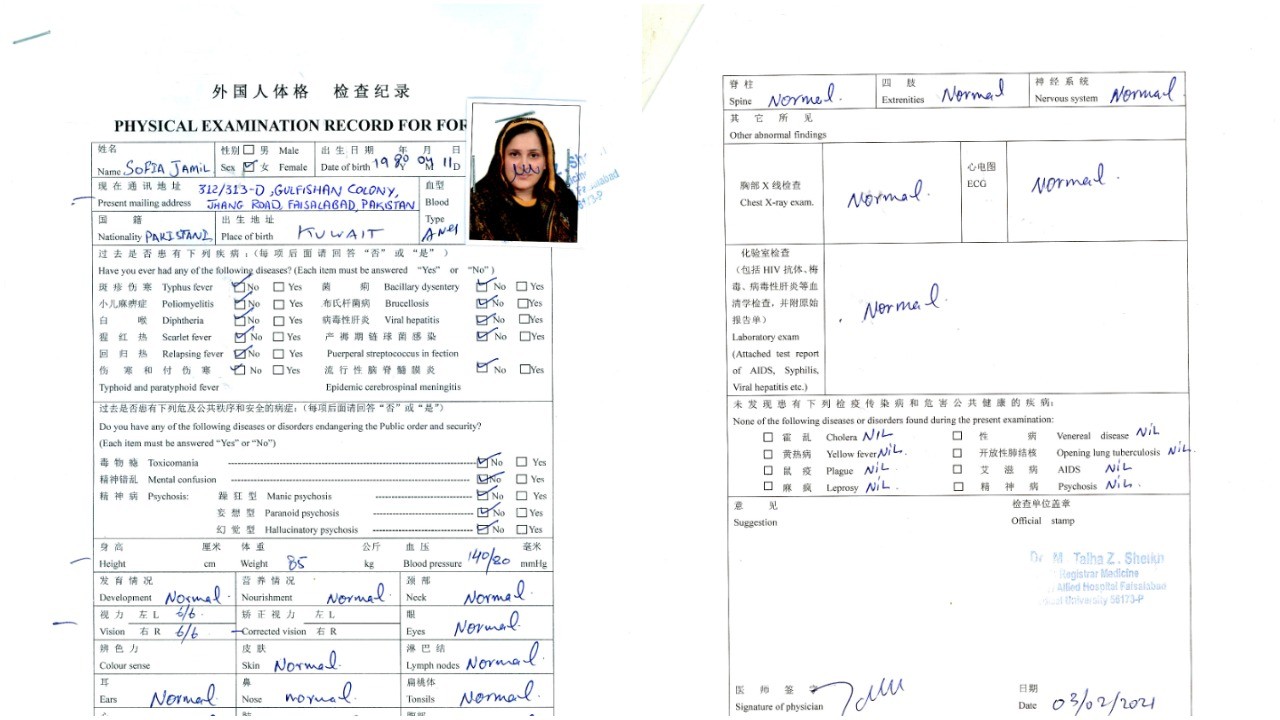 外国人体格 检查纪录
PHYSICAL EXAMINATION RECORD FOR FOR
姓名
Name SOFIA JAMIL
性别 □ 男 Male
Sex ☑ 女 Female
出生日期 年 月 日
Date of birth 1980 04 M 11 D
现在通讯地址 312/313-D, GULFISHAN COLONY,
Present mailing address JHANG ROAD, FAISALABAD, PAKISTAN
血型
Blood
Type
国 籍
Nationality PAKISTANI
出生地址
Place of birth KUWAIT
过去是否患有下列疾病:(每项后面请回答“否”或“是”)
Have you ever had any of the following diseases? (Each item must be answered “Yes” or “No”)
斑疹伤寒 Typhus fever ☑ No □ Yes 菌 痢 Bacillary dysentery ☑ No □ Yes
小儿麻痹症 Poliomyelitis ☑ No □ Yes 布氏杆菌病 Brucellosis ☑ No □ Yes
白 喉 Diphtheria ☑ No □ Yes 病毒性肝炎 Viral hepatitis ☑ No □ Yes
猩红热 Scarlet fever ☑ No □ Yes 产褥期链球菌感染 ☑ No □ Yes
回归热 Relapsing fever ☑ No □ Yes Puerperal streptococcus in fection
伤寒和付伤寒 ☑ No □ Yes 流行性脑脊髓膜炎 ☑ No □ Yes
Typhoid and paratyphoid fever Epidemic cerebrospinal meningitis
过去是否患有下列危及公共秩序和安全的病症:(每项后面请回答“否”或“是”)
Do you have any of the following diseases or disorders endangering the Public order and security?
(Each item must be answered “Yes” or “No”)
毒物瘾 Toxicomania ☑ No □ Yes
精神错乱 Mental confusion ☑ No □ Yes
精神病 Psychosis: 躁狂型 Manic psychosis ☑ No □ Yes
妄想型 Paranoid psychosis ☑ No □ Yes
幻觉型 Hallucinatory psychosis ☑ No □ Yes
身高 厘米 体重 公斤 血压 毫米
Height cm Weight 85 kg Blood pressure 140/80 mmHg
发育情况 营养情况 颈部
Development Normal. Nourishment Normal. Neck Normal.
视力 左 L 6/6 矫正视力 左 L 眼
Vision 右 R 6/6 Corrected vision 右 R Eyes Normal.
辨色力 皮肤 淋巴结
Colour sense Skin Normal. Lymph nodes Normal.
耳 鼻 扁桃体
Ears Normal Nose normal Tonsils Normal.
脊柱 四肢 神经系统
Spine Normal. Extrenities Normal Nervous system Normal
其它所见
Other abnormal findings
胸部 X 线检查
Chest X-ray exam. Normal.
心电图
ECG Normal.
化验室检查
(包括 HIV 抗体、梅
毒、病毒性肝炎等血
清学检查,并附原始
报告单)
Laboratory exam
(Attached test report
of AIDS, Syphilis,
Viral hepatitis etc.)
Normal.
未发现患有下列检疫传染病和危害公共健康的疾病:
None of the following diseases or disorders found during the present examination:
□ 霍乱 Cholera NIL □ 性 病 Venereal disease NIL
□ 黄热病 Yellow fever NIL. □ 开放性肺结核 Opening lung tuberculosis NIL.
□ 鼠疫 Plague NIL. □ 艾滋病 AIDS NIL
□ 麻疯 Leprosy NIL. □ 精神病 Psychosis NIL.
意 见
Suggestion
检查单位盖章
Official stamp
Dr. M Talha Z. Sheikh
Registrar Medicine
Allied Hospital Faisalabad
University 56173-P
医师签字
Signature of physician
日期
Date 03/02/2021